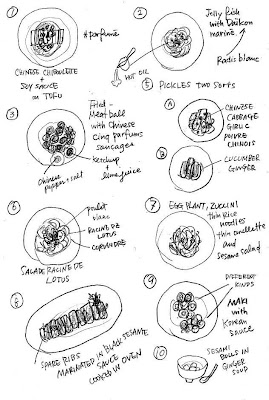 1
#parfums
CHINESE CIBOULETTE
+
SOY SAUCE
on TOFU
2
Jelly fish
with Daikon
marine.
Radis blanc
HOT OIL
3
Fried
Meat ball
with Chinese
Cinq parfums
saucages
ketchup
+
lime juice
Chinese
pepper + salt
5 PICKLES TWO SORTS
A
CHINESE
CABBAGE
GARLIC
POIVRE
CHINOIS
B
CUCUMBER
GINGER
6
poulet
RACINE DE
LOTUS
CORIANDRE
SALADE RACINE DE
LOTUS
7 EGG PLANT, ZUCCINI
thin Rice
noodles
thin omellette
and
Sesame salad
8
SPARE RIBS
MARINATED IN BLACK SESAME
SAUCE
COOKED IN OVEN
9
DIFFERENT
KINDS
MAKI
with
Korean
sauce
10
SESAMI
BULLS IN
GINGER
SOUP